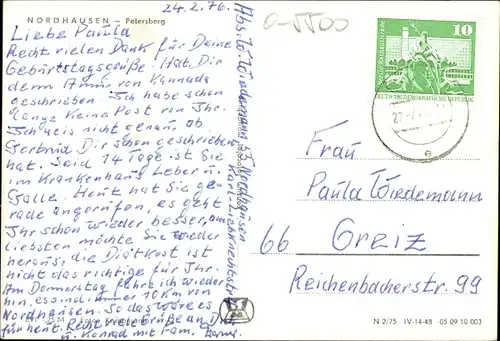 24.2.76.
NORDHAUSEN – Petersberg
Liebe Paula
Recht vielen Dank für Deine
Geburtstagsgrüße. Hat Dir
denn Anni von Kannada
geschrieben. Ich habe schon
lange keine Post von Ihr.
Ich weis nicht genau, ob
Gertrud Dir schon geschrieben
hat. Seid 14 Tage ist Sie
im Krankenhaus Leber u.
Galle. Heut hat Sie ge-
rade angerufen, es geht
Ihr schon wieder besser, am
liebsten möchte Sie wieder
heraus, die Diätkost ist
nicht das richtige für Ihr.
Am Donnerstag fahre ich wieder
hin, es sind immer 10 Km von
Nordhausen. So das wäre es
für heut. Recht viele Grüße an Dich
u. Konrad mit Fam.
Abs. W. Wiedemann 55 Nordhausen
Karl-Liebknechtstr.
10
DEUTSCHE DEMOKRATISCHE REPUBLIK
Frau
Paula Wiedemann
66 Greiz
Reichenbacherstr. 99
N 2/75 IV-14-48 05 09 10 003